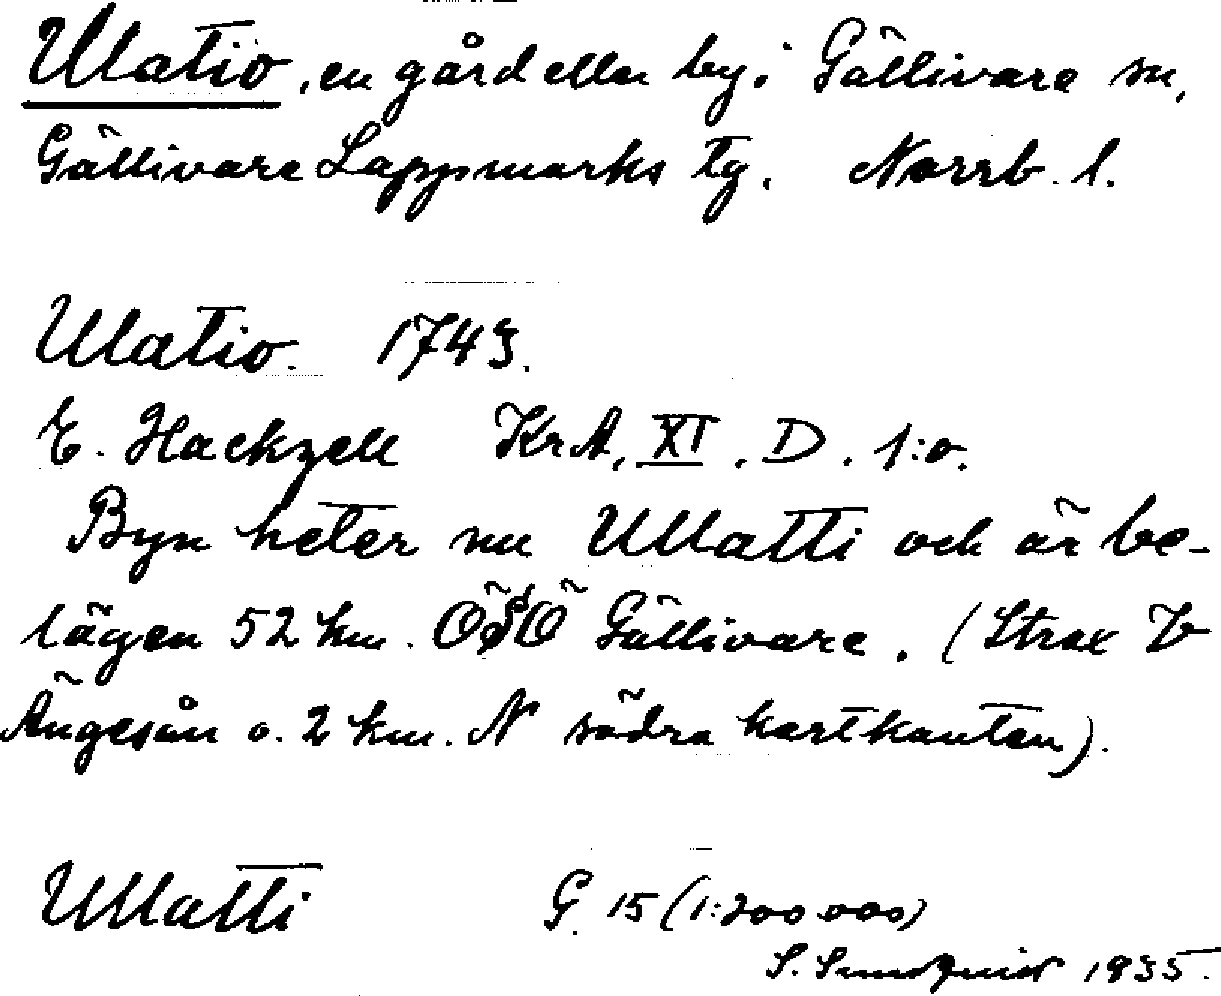 Ulatio, en gård eller by i Gällivare sn,
Gällivare Lappmarks tg. Norrb. l.
Ulatio. 1743.
E. Hackzell KrA, XI. D. 1:o.
Byn heter nu Ullatti och är be-
lägen 52 km. OSO Gällivare. (Strax V
Ängesån o. 2 km. N södra kartkanten).
Ullatti G. 15 (1:200.000)
S. Sundquist 1935.